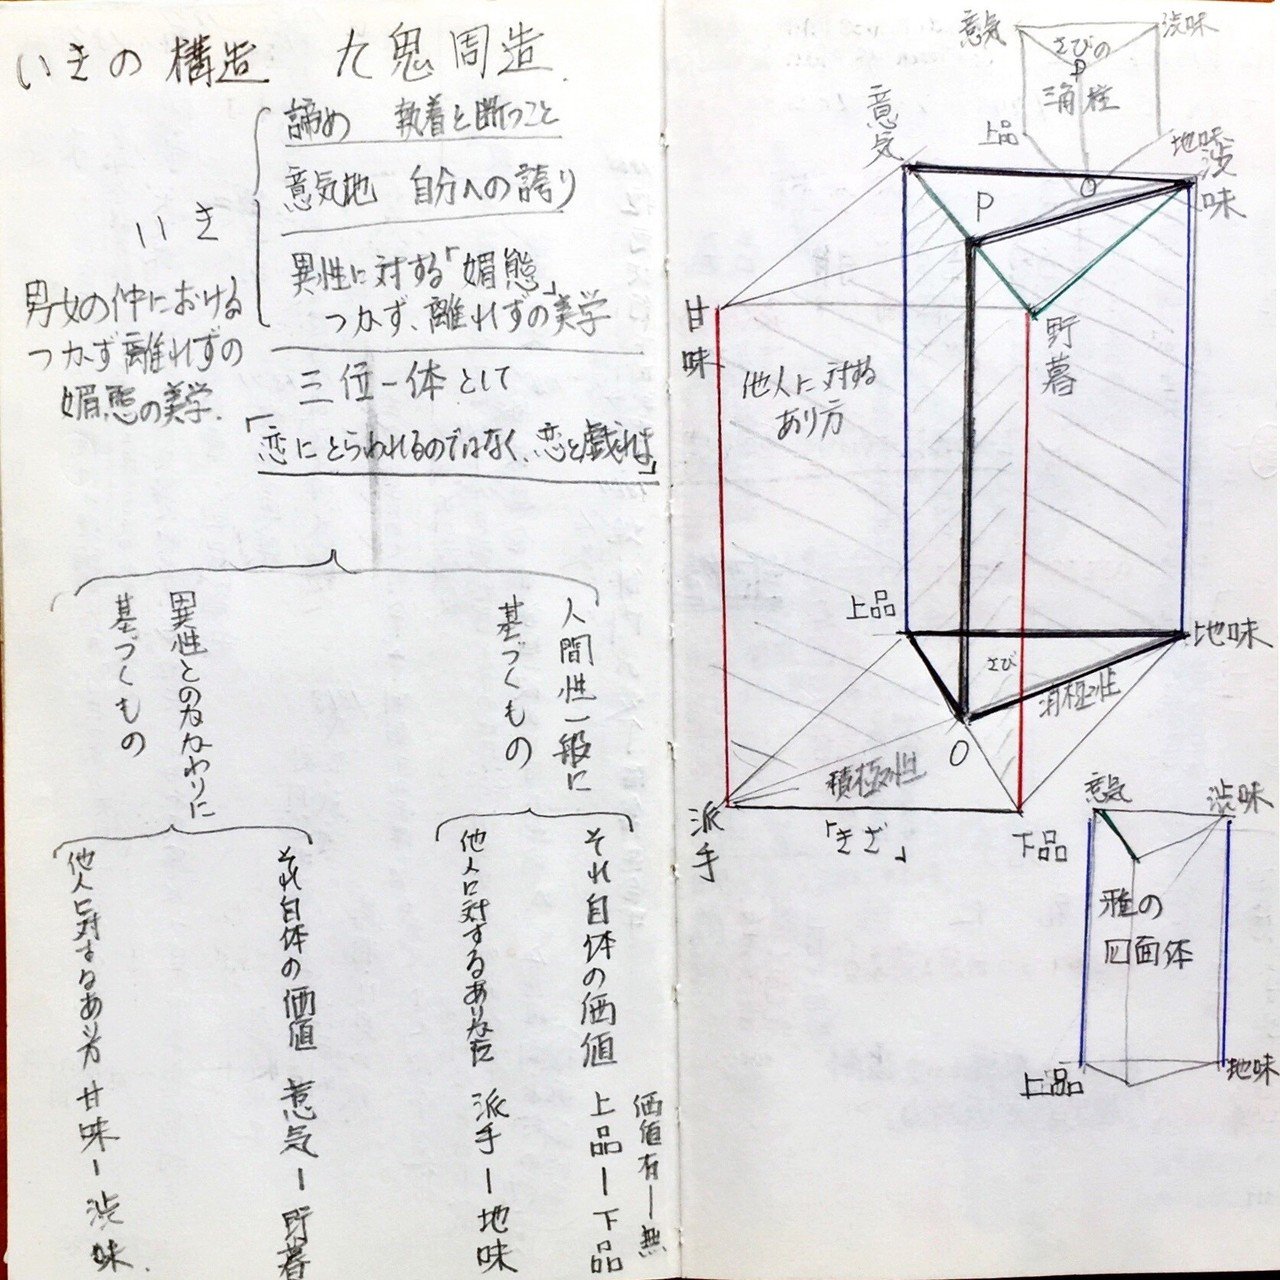 いきの構造 九鬼周造.
諦め 執着と断つこと
意気地 自分への誇り
いき
異性に対する「媚態」
つかず、離れずの美学
男女の仲における
つかず離れずの
媚態の美学.
三位一体として
「恋にとらわれるのではなく、恋と戯れよ」
人間性一般に
基づくもの
異性とのかかわりに
基づくもの
それ自体の価値
上品ー下品
価値有ー無
他人に対するありかた
派手ー地味
それ自体の価値
意気ー野暮
他人に対するあり方
甘味ー渋味.
意気
渋味
さびの
P
三角柱
上品
地味
O
意気
渋味
P
甘味
野暮
他人に対する
あり方
上品
地味
さび
消極性
O
積極性
派手
「きざ」
下品
意気
渋味
雅の
四面体
上品
地味